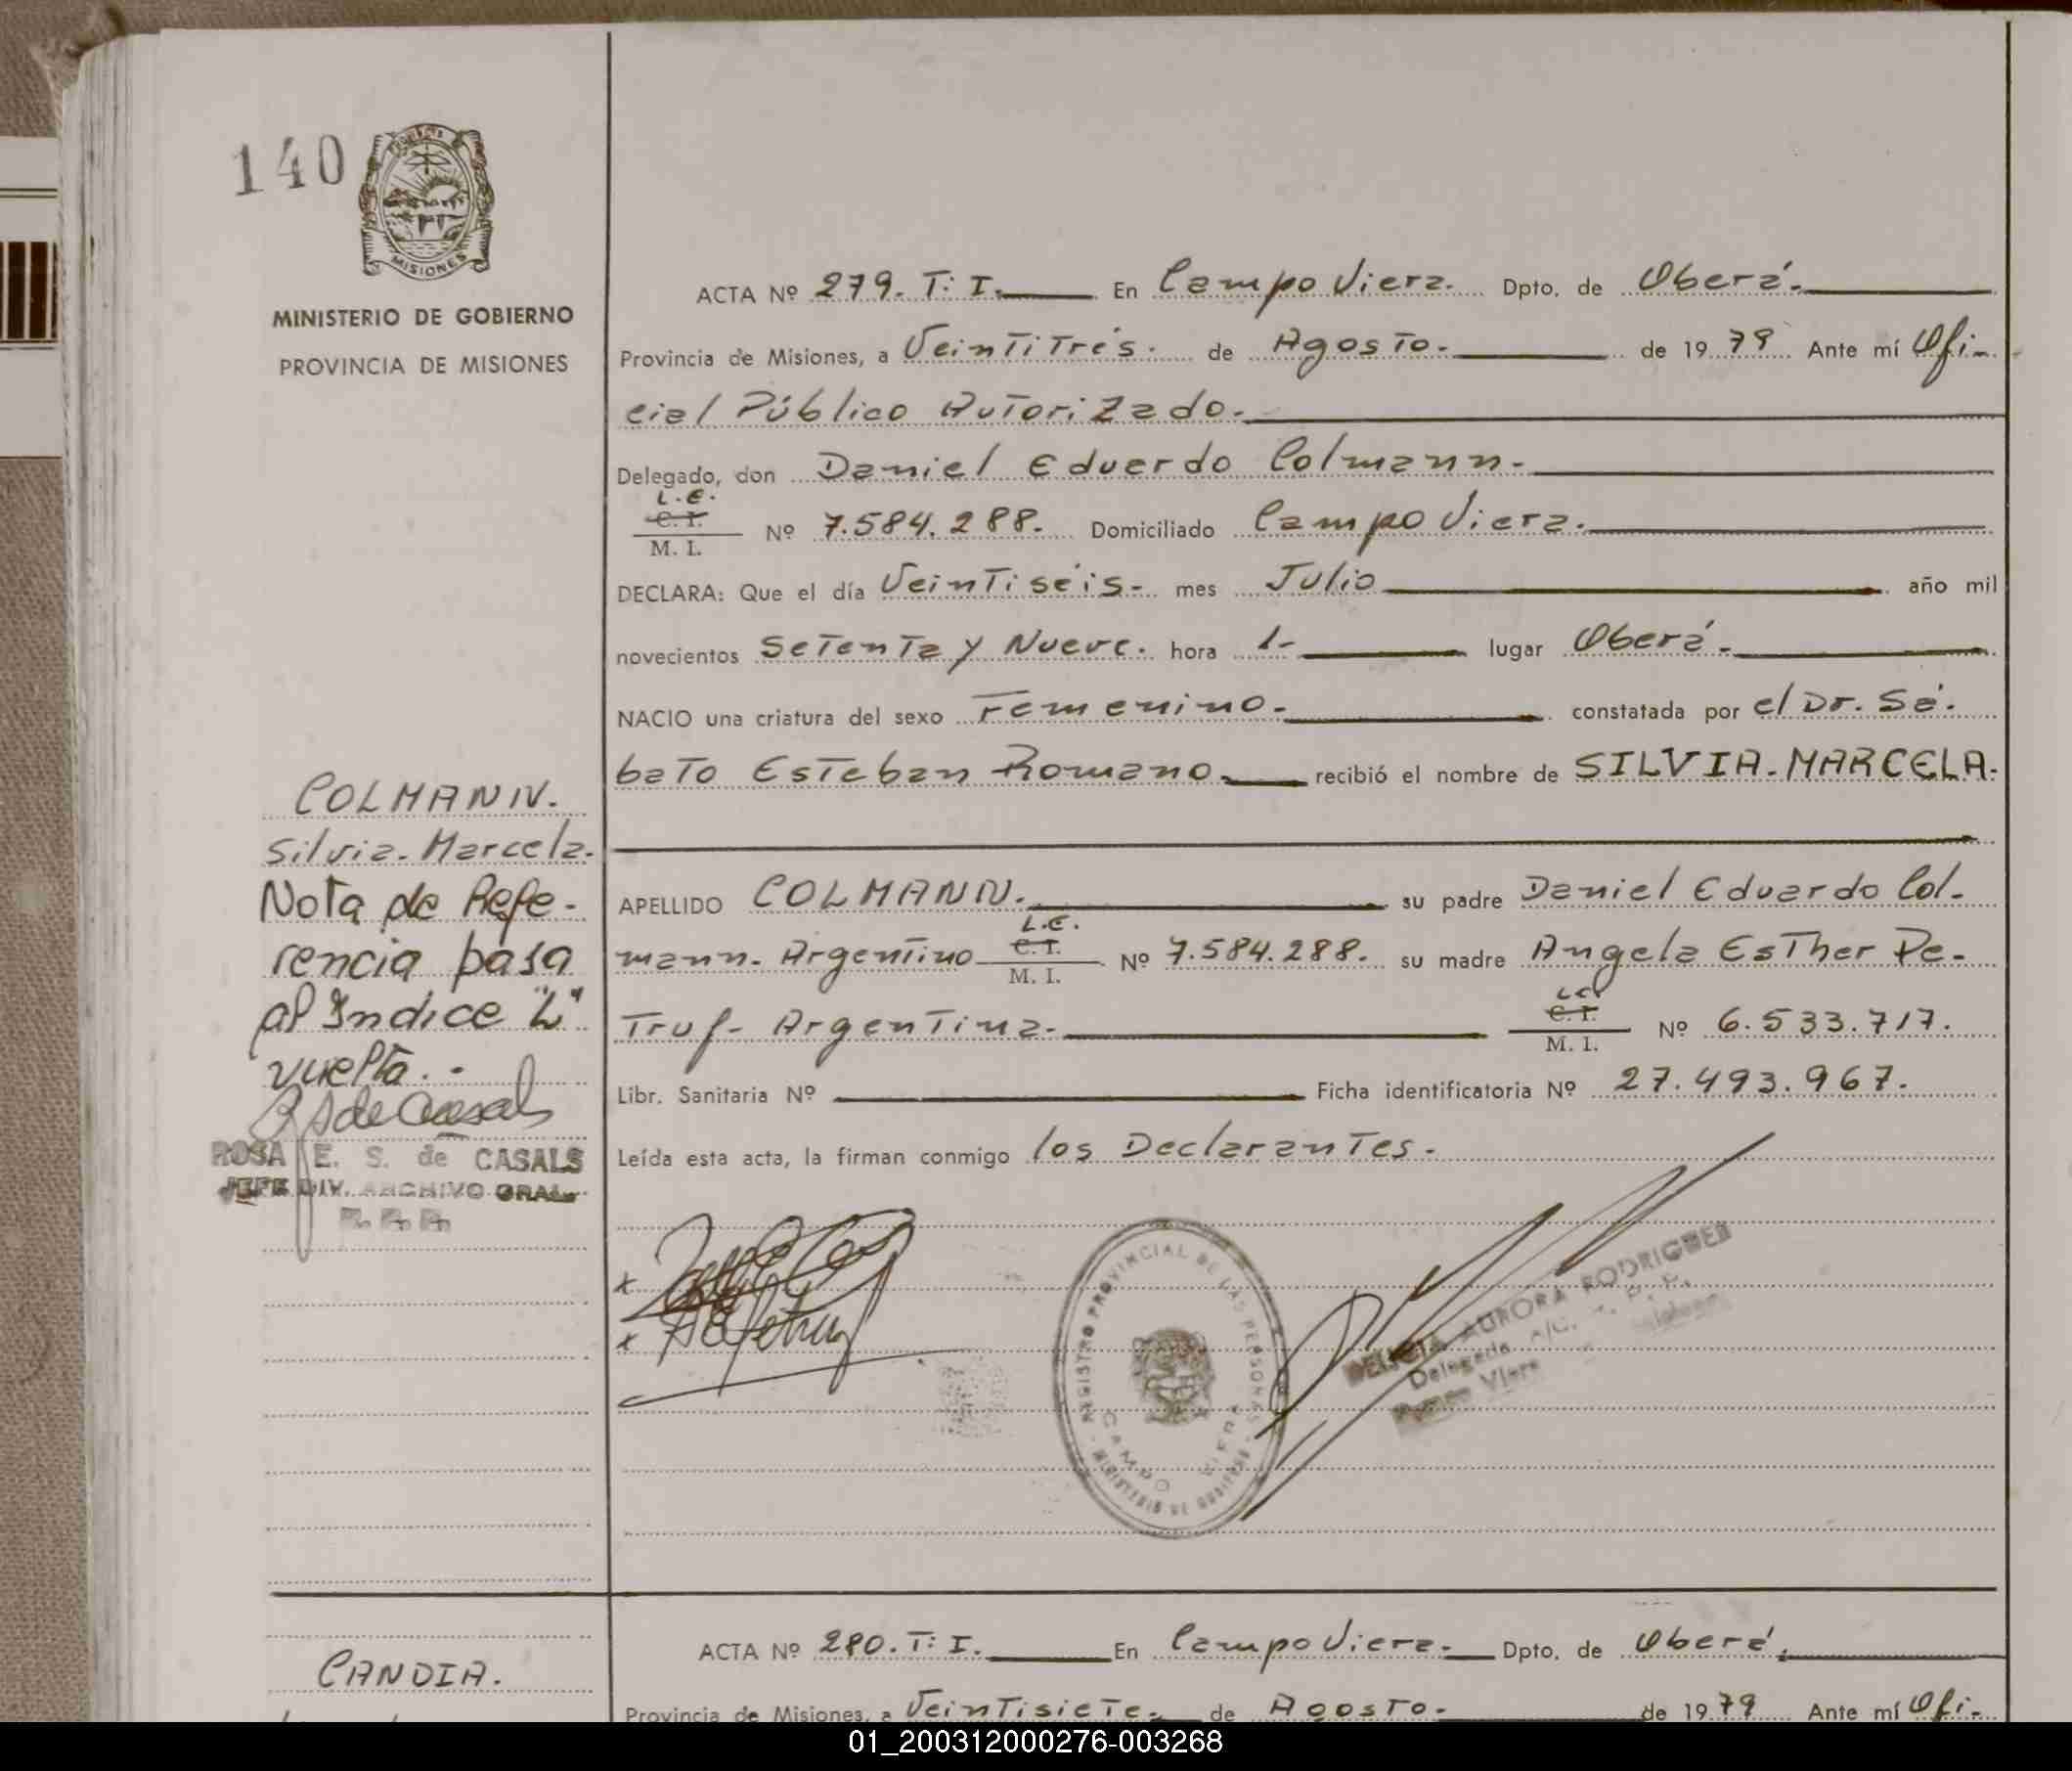 140
MISIONES
MINISTERIO DE GOBIERNO
PROVINCIA DE MISIONES
ACTA Nº 279. T: I. En Campo Viera. Dpto. de Oberá.
Provincia de Misiones, a Veintitrés. de Agosto. de 1979 Ante mí Ofi-
cial Público Autorizado.
Delegado, don Daniel Eduardo Colmann.
L.E.
C. I.
M. I.
Nº 7.584.288. Domiciliado Campo Viera.
DECLARA: Que el día Veintiséis- mes Julio año mil
novecientos Setenta y Nueve. hora 1- lugar Oberá.
NACIO una criatura del sexo Femenino. constatada por el Dr. Sá.
bato Esteban Romano. recibió el nombre de SILVIA. MARCELA.
COLMANN.
Silvia. Marcela.
Nota de Refe-
rencia pasa
al Indice "L"
vuelta..
ROSA E. S. de CASALS
JEFE DIV. ARCHIVO GRAL.
APELLIDO COLMANN. su padre Daniel Eduardo Col.
mann. Argentino L.E. C. I. M. I. Nº 7.584.288. su madre Angela Esther Pe-
truf- Argentina. L.C. C. I. M. I. Nº 6.533.717.
Libr. Sanitaria Nº Ficha identificatoria Nº 27.493.967.
Leída esta acta, la firman conmigo los Declarantes.
REGISTRO PROVINCIAL DE LAS PERSONAS
CAMPO VIERA
DELICIA AURORA RODRIGUEZ
Delegada A/C. R. P. P.
Campo Viera
ACTA Nº 280. T: I. En Campo Viera. Dpto. de Oberá.
CANDIA.
Provincia de Misiones, a Veintisiete. de Agosto. de 1979 Ante mí Ofi-
01_200312000276-003268